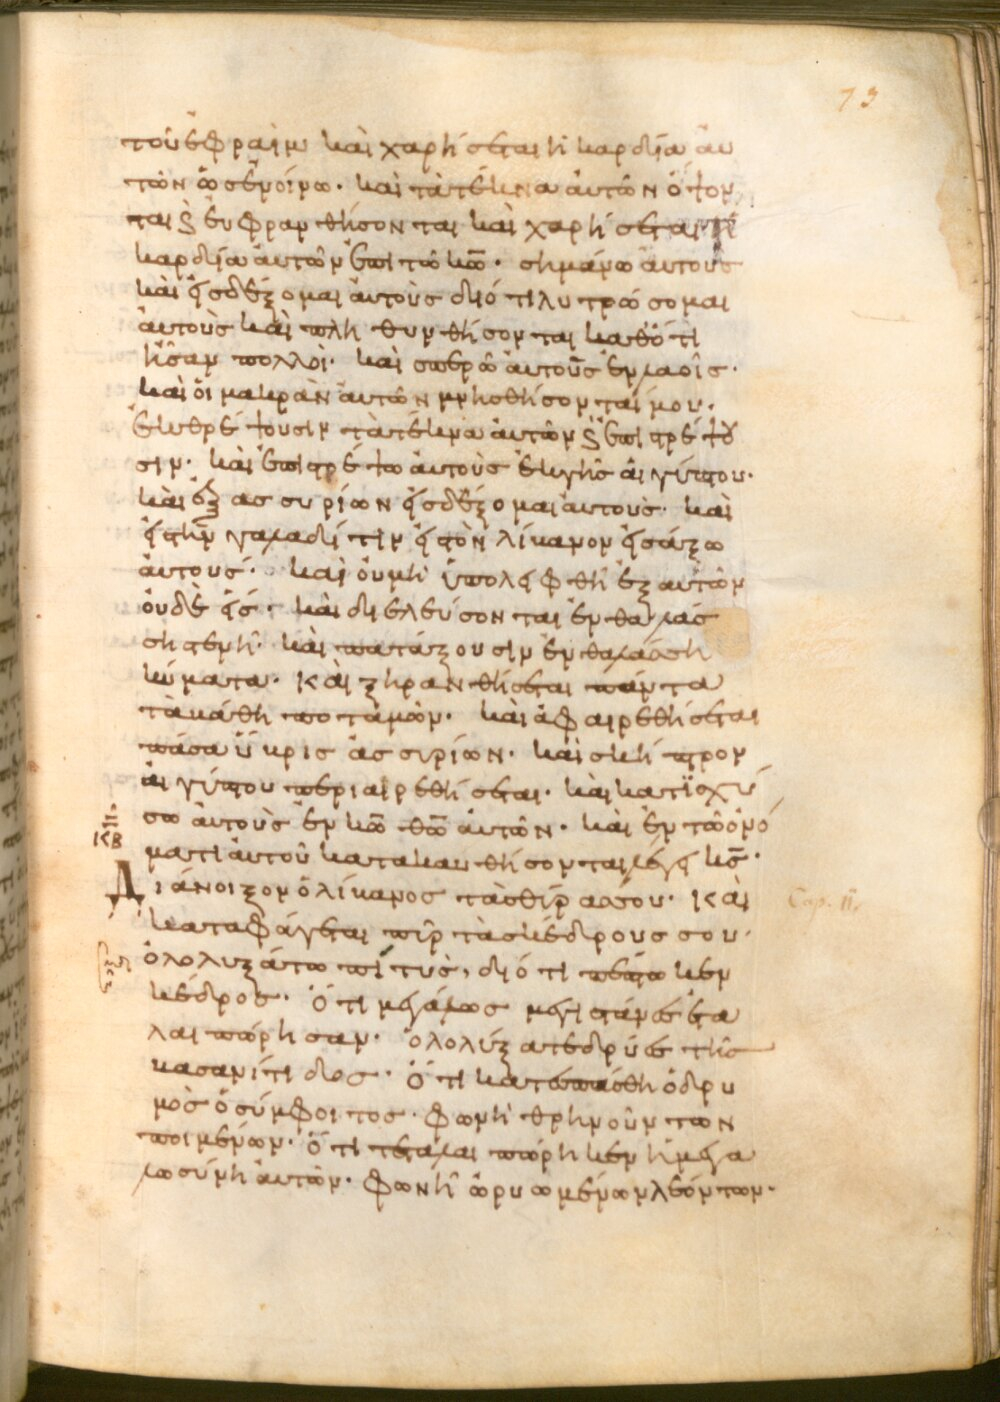 73
τοῦ ἐφραὶμ καὶ χαρήσεται ἡ καρδία αὐ
τῶν ὡσ ἐν οίνω· καὶ τὰ τέκνα αὐτῶν ὄψον
ται ϗ εὐφρανθήσονται καὶ χαρήσεται ἡ
καρδία αὐτῶν ἐπὶ τῶ κ̅ω̅· σημάνω αὐτοὺσ
καὶ εἰσδέξομαι αὐτοὺσ διότι λυτρώσομαι
αὐτοὺσ καὶ πληθυνθήσονται καθότι
ἦσαν πολλοὶ· καὶ σπερῶ αὐτοὺσ ἐν λαοῖσ·
καὶ οἱ μακρὰν αὐτῶν μνησθήσονταί μου·
ἐκθρέψουσιν τὰ τέκνα αὐτῶν ϗ ἐπιστρέψου
σιν· καὶ ἐπιστρέψω αὐτοὺσ ἐκ γῆσ αἰγύπτου·
καὶ ἐξ ασσυρίων εἰσδέξομαι αὐτοὺσ· καὶ
εἰσ τὴν γαλααδίτιν εἰσ τὸν λίβανον εἰσάξω
αὐτούσ· καὶ οὐ μὴ ὑπολειφθῆ ἐξ αὐτῶν
οὐδὲ εἷσ· καὶ διελεύσονται ἐν θαλάσ
ση στενῆ· καὶ πατάξουσιν ἐν θαλάσση
κύματα· καὶ ξηρανθήσεται πάντα
τὰ βάθη ποταμῶν· καὶ ἀφαιρεθήσεται
πᾶσα ὕβρισ ἀσσιρίων· καὶ σκῆπτρον
αἰγύπτου περιαιρεθήσεται· καὶ κατϊσχύ
σω αὐτοὺσ ἐν κ̅ω̅ θ̅ω̅ αὐτῶν· καὶ ἐν τῶ ὀνό
ΚΒ
ματι αὐτοῦ κατακαυθήσονται λέγει κ̅σ̅·
Διάνοιξον ὁ λίβανοσ τὰσ θύρασ σου· καὶ
Cap. 11.
καταφάγεται πῦρ τὰσ κέδρουσ σου·
ὀλολυξάτω πίτυσ, διότι πέπτωκεν
κέδροσ· ὅτι μεγάλωσ μεγιστάνεσ ἐτα
λαιπώρησαν· ὀλολύξατε δρύεσ τῆσ
βασανίτιδοσ· ὅτι κατεσπάσθη ὁ δρυ
μὸσ ὁ σύμφοιτοσ· φωνὴ θρηνοῦντων
ποιμένων· ὅτι τεταλαιπώρηκεν ἡ μεγα
λωσύνη αὐτῶν· φωνὴ ὠρυωμένων λεόντων·